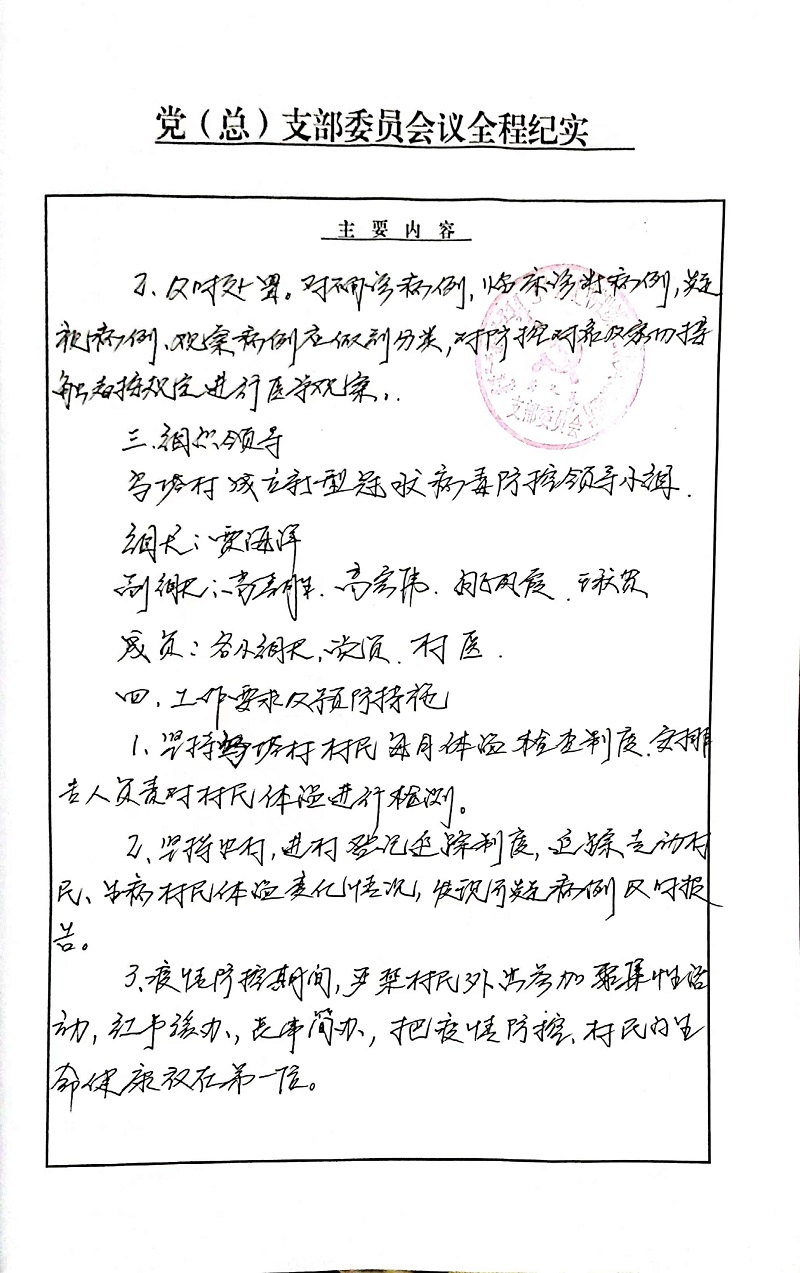 党（总）支部委员会议全程纪实
主要内容
2、及时处置。对确诊病例，临床诊断病例，疑
似病例、观察病例应做到分类，对防控对象及密切接
触者按规定进行医学观察。
三、组织领导
村成立新型冠状病毒防控领导小组.
组长：贾海洋
副组长：高 高宏伟.
成员：各小组长、党员、村医.
四、工作要求及预防措施
1、坚持 村村民每月体温检查制度、安排
专人负责对村民体温进行检测。
2、坚持出村，进村登记追踪制度，追踪走动村
民、生病村民体温变化情况，发现可疑病例及时报
告。
3、疫情防控期间，严禁村民外出参加聚集性活
动，红事缓办、丧事简办，把疫情防控、村民的生
命健康放在第一位。
支部委员会